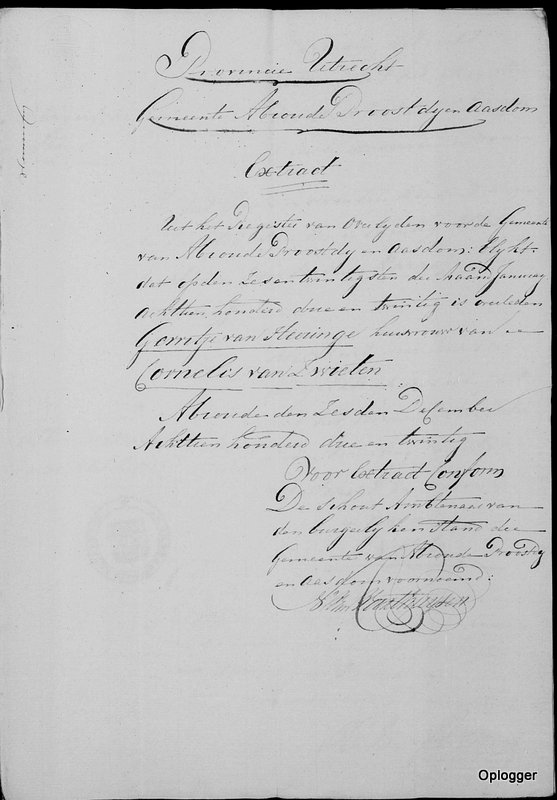 Provincie Utrecht
Gemeente Abcoude Proostdy en Aasdom
Extract
Uit het Register van Overlyden voor de Gemeente
van Abcoude Proostdy en Aasdom: blykt
dat op den Zesentwintigsten der Maand January
Achttien honderd drie en twintig is overleden
Gerritje van huisvrouw van
Cornelis van Zwieten.
Abcoude den Zesden December
Achttien honderd drie en twintig
Voor Extract Conform
De Schout Ambtenaar van
den burgerlyken stand der
Gemeente van Abcoude Proostdy
en Aasdom voornoemd:
Oplogger